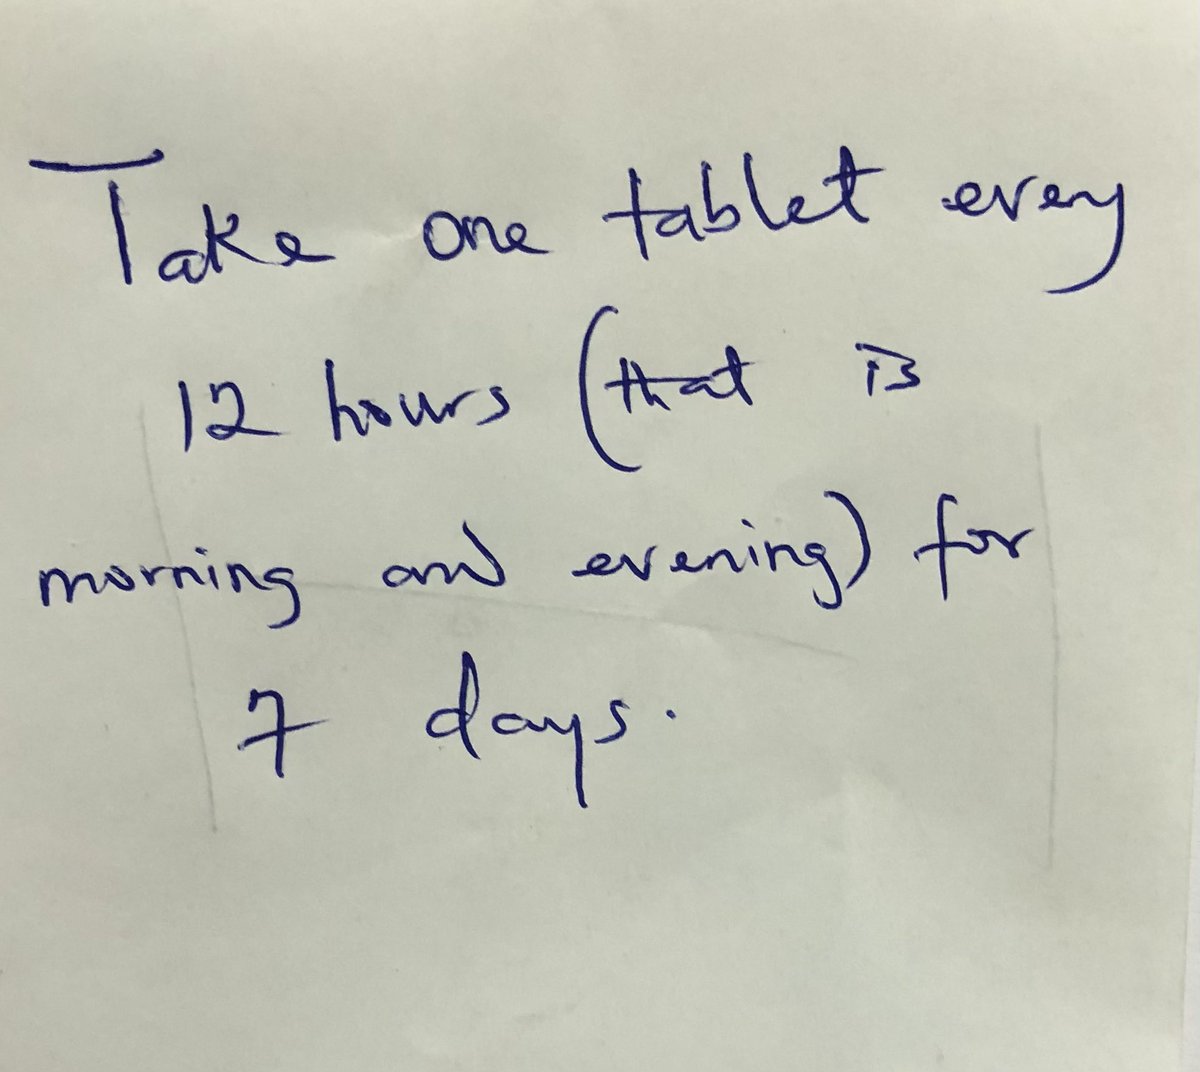 Take one tablet every
12 hours (that is
morning and evening) for
7 days.